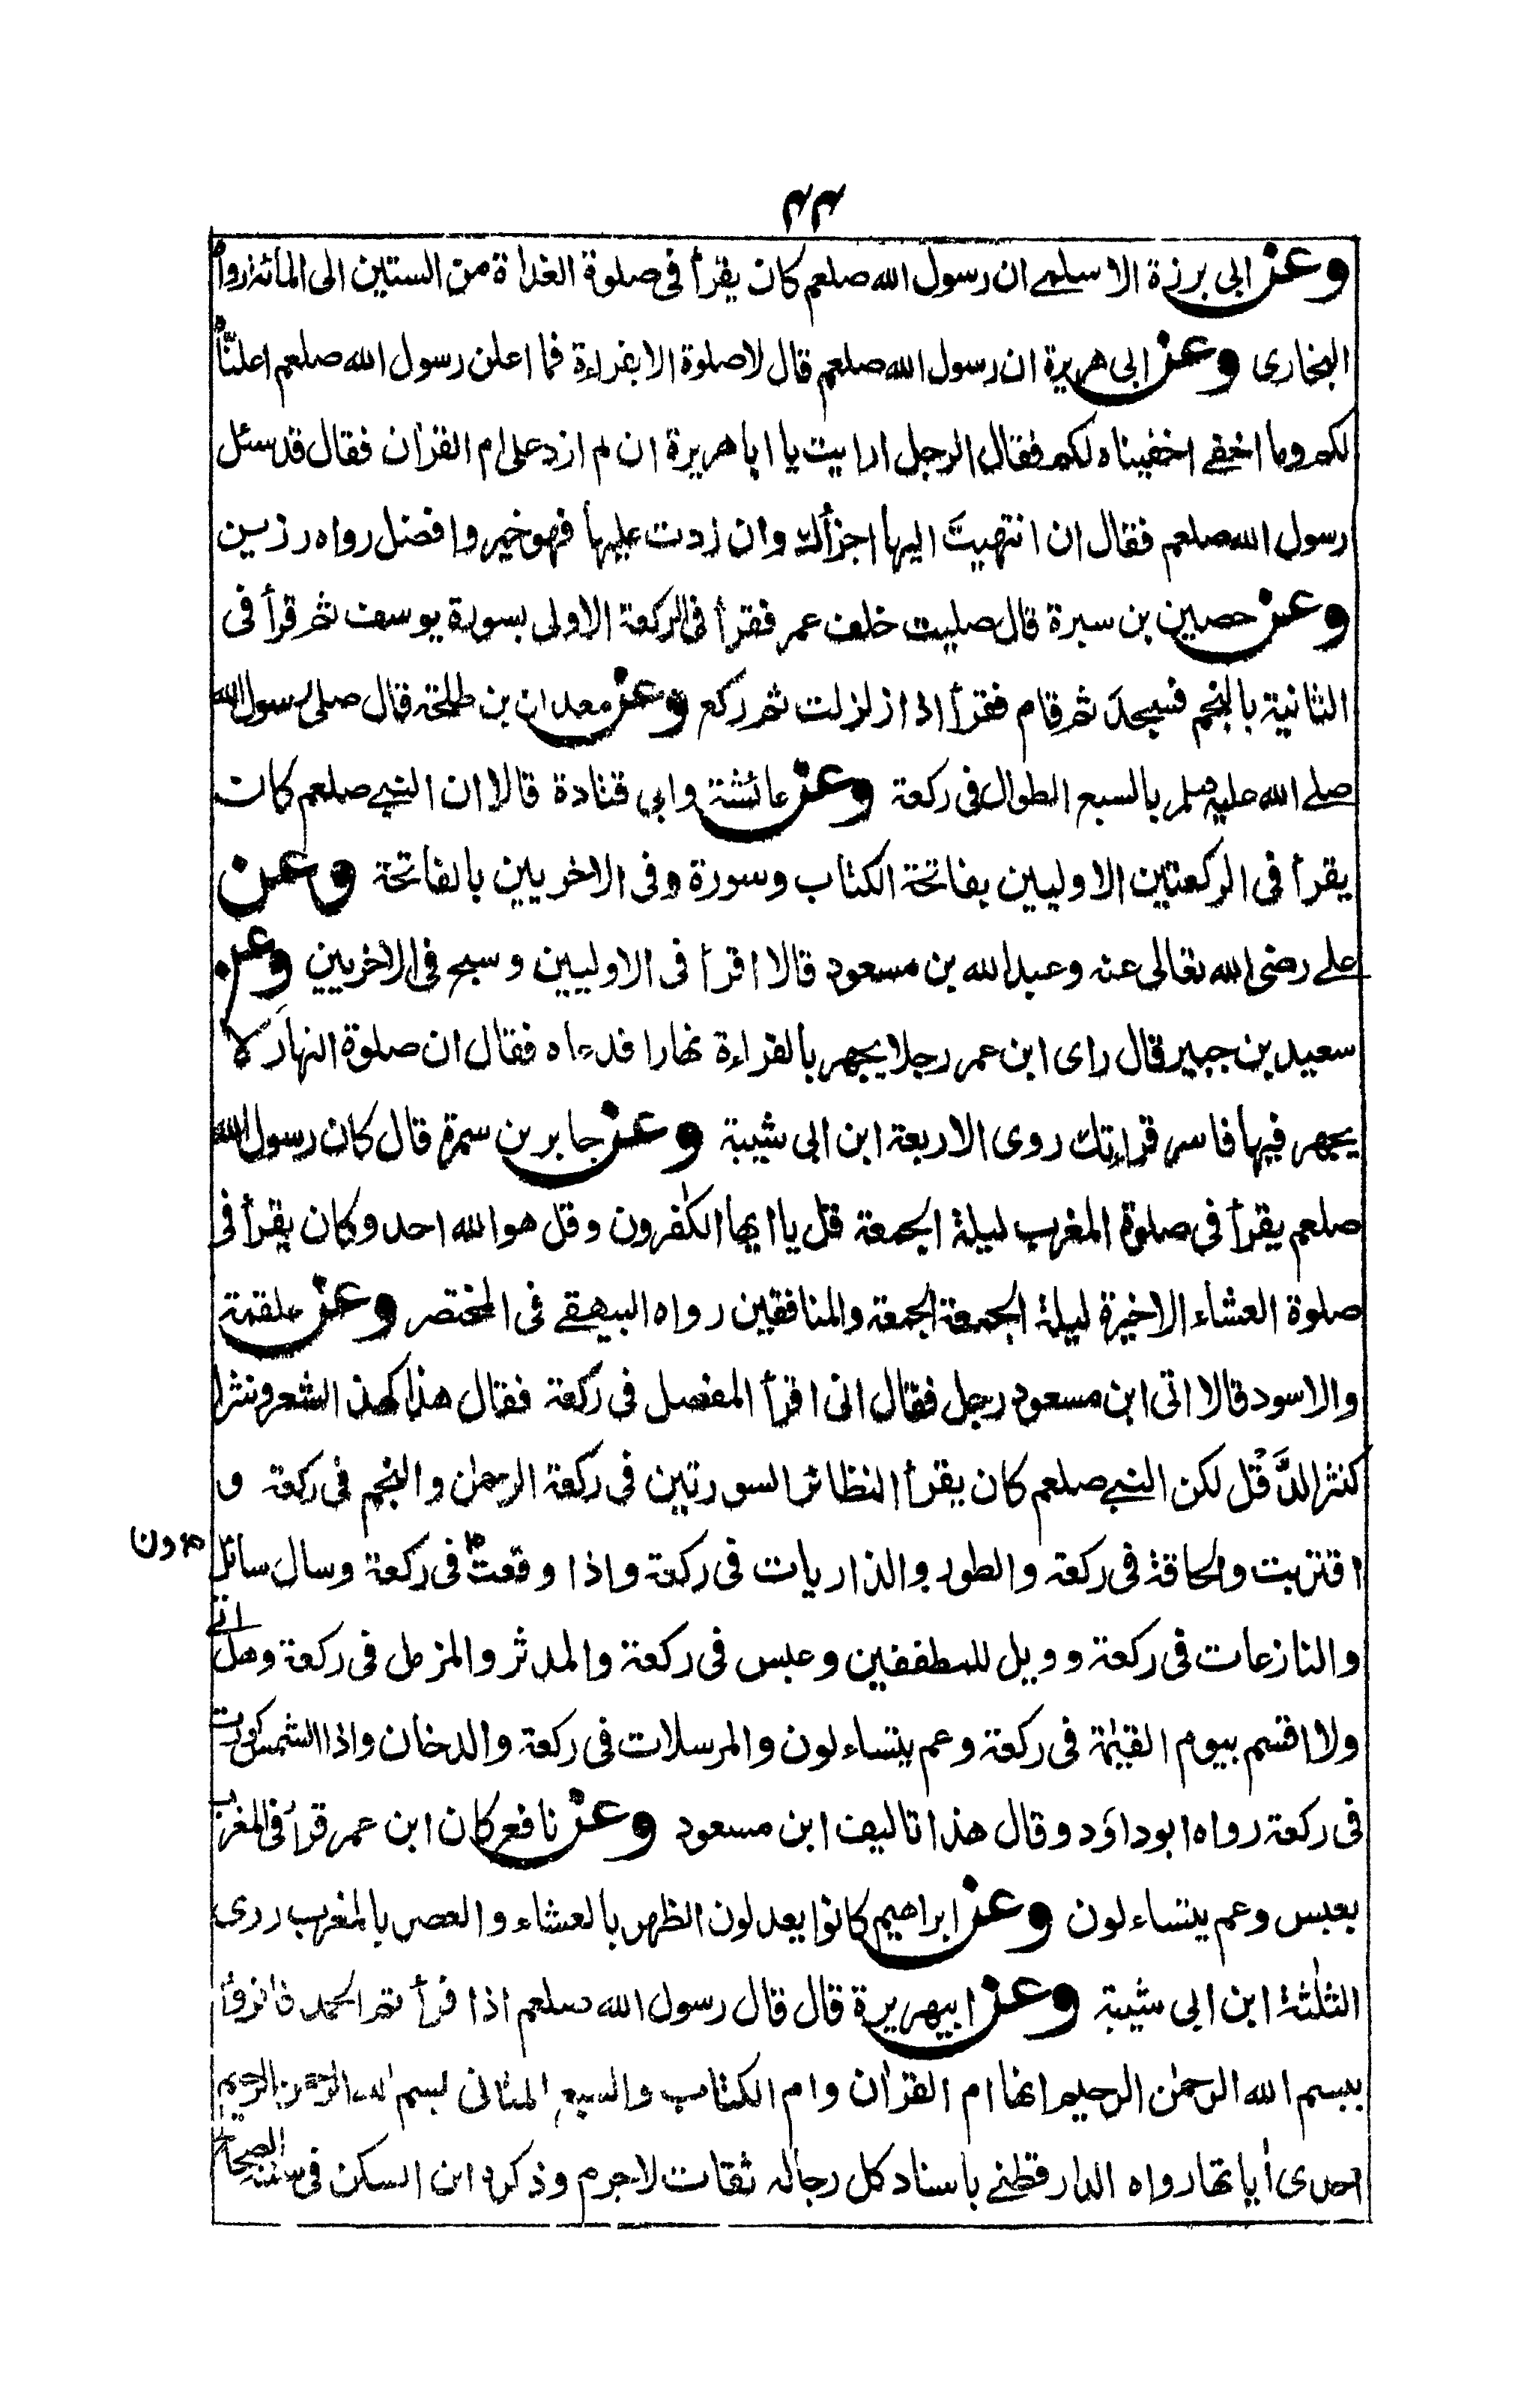 ۴۴
وعن ابی برزة الاسلمے ان رسول الله صلعم کان یقرأ فی صلوة الغداة من الستین الی المائة رواه
البخاری وعن ابی هریرة ان رسول الله صلعم قال لا صلوة الا بقراءة فما اعلن رسول الله صلعم اعلنّاه
لکم وما اخفے اخفیناه لکم فقال الرجل ارایت یا ابا هریرة ان لم ازد علی ام القرأن فقال قد سئل
رسول الله صلعم فقال ان انتهیتَ الیها اجزأک وان زدت علیها فهو خیر وافضل رواه رزین
وعن حصین بن سبرة قال صلیت خلف عمر فقرأ فی الرکعة الاولی بسورة یوسف ثم قرأ فی
الثانیة بالنجم فسجدَ ثم قام فقرأ اذا زلزلت ثم رکع وعن معدان بن طلحة قال صلی رسول الله
صلے الله علیه وسلم بالسبع الطوال فی رکعة وعن عائشة وابی قتادة قالا ان النبے صلعم کان
یقرأ فی الرکعتین الاولیین بفاتحة الکتاب وسورة وفی الاخریین بالفاتحة وعن
علے رضی الله تعالی عنه وعبد الله بن مسعود قالا اقرأ فی الاولیین وسبح فی الاخریین وعن
سعید بن جبیر قال رای ابن عمر رجلا یجهر بالقراءة نهارا فدعاه فقال ان صلوة النهار لا
یجهر فیها فاسر قراءتک روی الاربعة ابن ابی شیبة وعن جابر بن سمرة قال کان رسول الله
صلعم یقرأ فی صلوة المغرب لیلة الجمعة قل یا ایها الکٰفرون وقل هو الله احد وکان یقرأ فی
صلوة العشاء الاخیرة لیلة الجمعة الجمعة والمنافقین رواه البیهقے فی المختصر وعن علقمة
والاسود قالا اتی ابن مسعود رجل فقال انی اقرأ المفصل فی رکعة فقال هذا کهذ الشعر ونثرا
کنثر الدَّقْل لکن النبے صلعم کان یقرأ النظائر السورتین فی رکعة الرحمٰن والنجم فی رکعة و
اقتربت والحاقة فی رکعة والطور والذاریات فی رکعة واذا وقعت فی رکعة وسال سائل
والنازعات فی رکعة وویل للمطففین وعبس فی رکعة والمدثر والمزمل فی رکعة وهل اتے
ولا اقسم بیوم القیٰمة فی رکعة وعم یتساءلون والمرسلات فی رکعة والدخان واذا الشمس کورت
فی رکعة رواه ابوداؤد وقال هذا تالیف ابن مسعود وعن نافع کان ابن عمر قرأ فی المغرب
بعبس وعم یتساءلون وعن ابراهیم کانوا یعدلون الظهر بالعشاء والعصر بالمغرب روی
الثلٰثة ابن ابی شیبة وعن ابیهریرة قال قال رسول الله صلعم اذا قرأتم الحمد فاقرؤا
ببسم الله الرحمٰن الرحیم انها ام القرأن وام الکتاب والسبع المثانی بسم الله الرحمٰن الرحیم
احدی أیاتها رواه الدارقطنے باسناد کل رجاله ثقات لاجرم وذکره ابن السکن فی سننه الصحاح